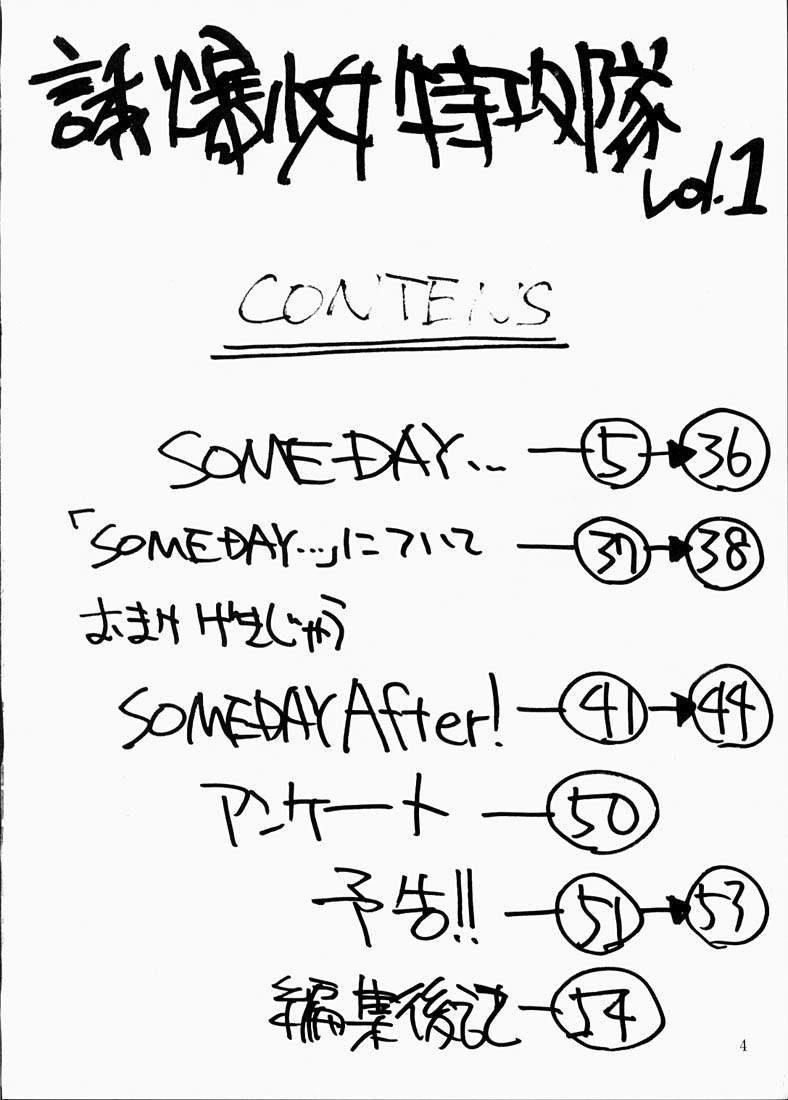 誘爆少女特攻隊
vol.1
CONTENS
SOMEDAY… 5 → 36
「SOMEDAY…」について 37 → 38
おまけげきじゃう
SOMEDAY After! 41 → 44
アンケート 50
予告!! 51 → 53
編集後記 54
4